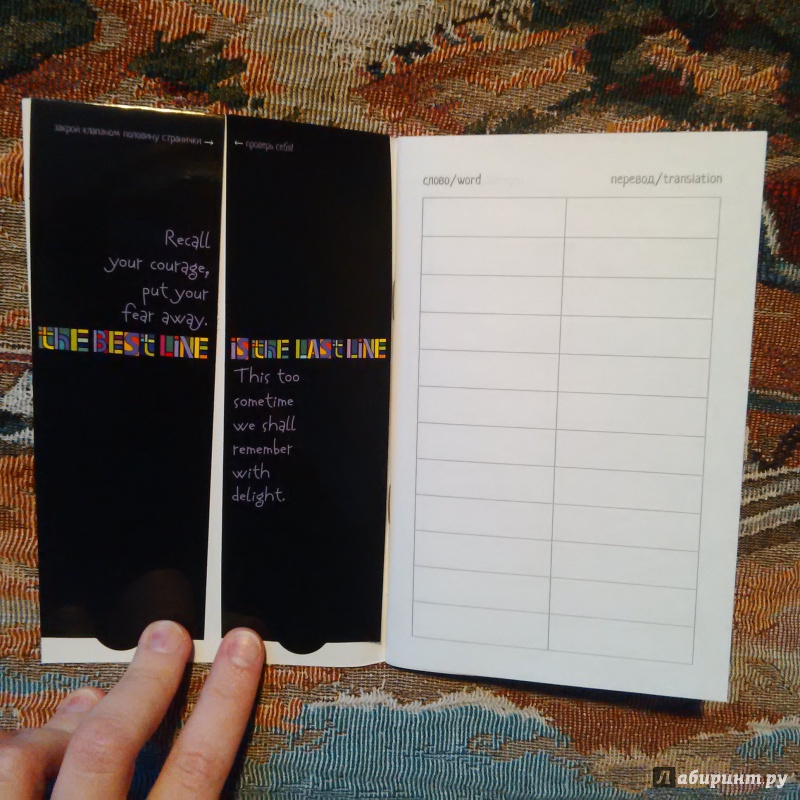 закрой клапаном половину странички →
Recall
your courage,
put your
fear away.
the BEST LINE
← проверь себя!
is the LAST LINE
This too
sometime
we shall
remember
with
delight.
слово/word
перевод/translation
Лабиринт.ру